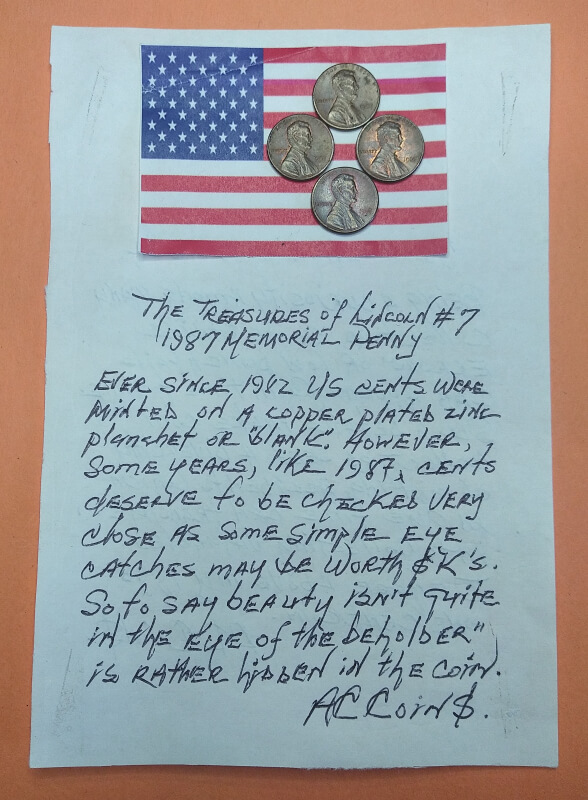 The Treasures of Lincoln #7
1987 Memorial Penny
Ever since 1982 US cents were
minted on a copper plated zinc
planchet or "blank". However,
some years, like 1987, cents
deserve to be checked very
close as some simple eye
catches may be worth $K's.
So to say beauty isn't quite
in the eye of the beholder"
is rather hidden in the coin.
AC Coin$.